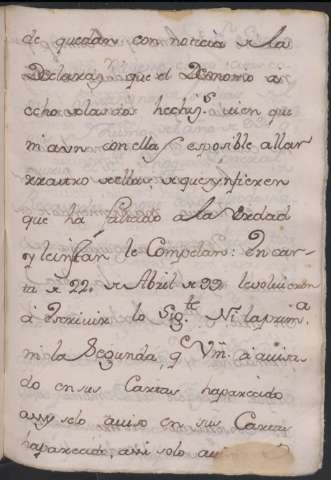 de quedan con noticia de las
Declaraz.s que el Demonio a
echo solandos hechiz.s vien que
ni aun con ella es posible allar
rrastro de ellas, de que ynfieren
que ha faltado a la Verdad
y leinstan le Compelan: En car
ta de 22. de Abril de 99. levolvieron
à Escrivir lo Sig.te Ni la prim.a
ni la Segunda, q.e Vm. à avisa
do en sus Cartas haparecido
assy solo aviso en sus Cartas
haparecido, assi solo avi